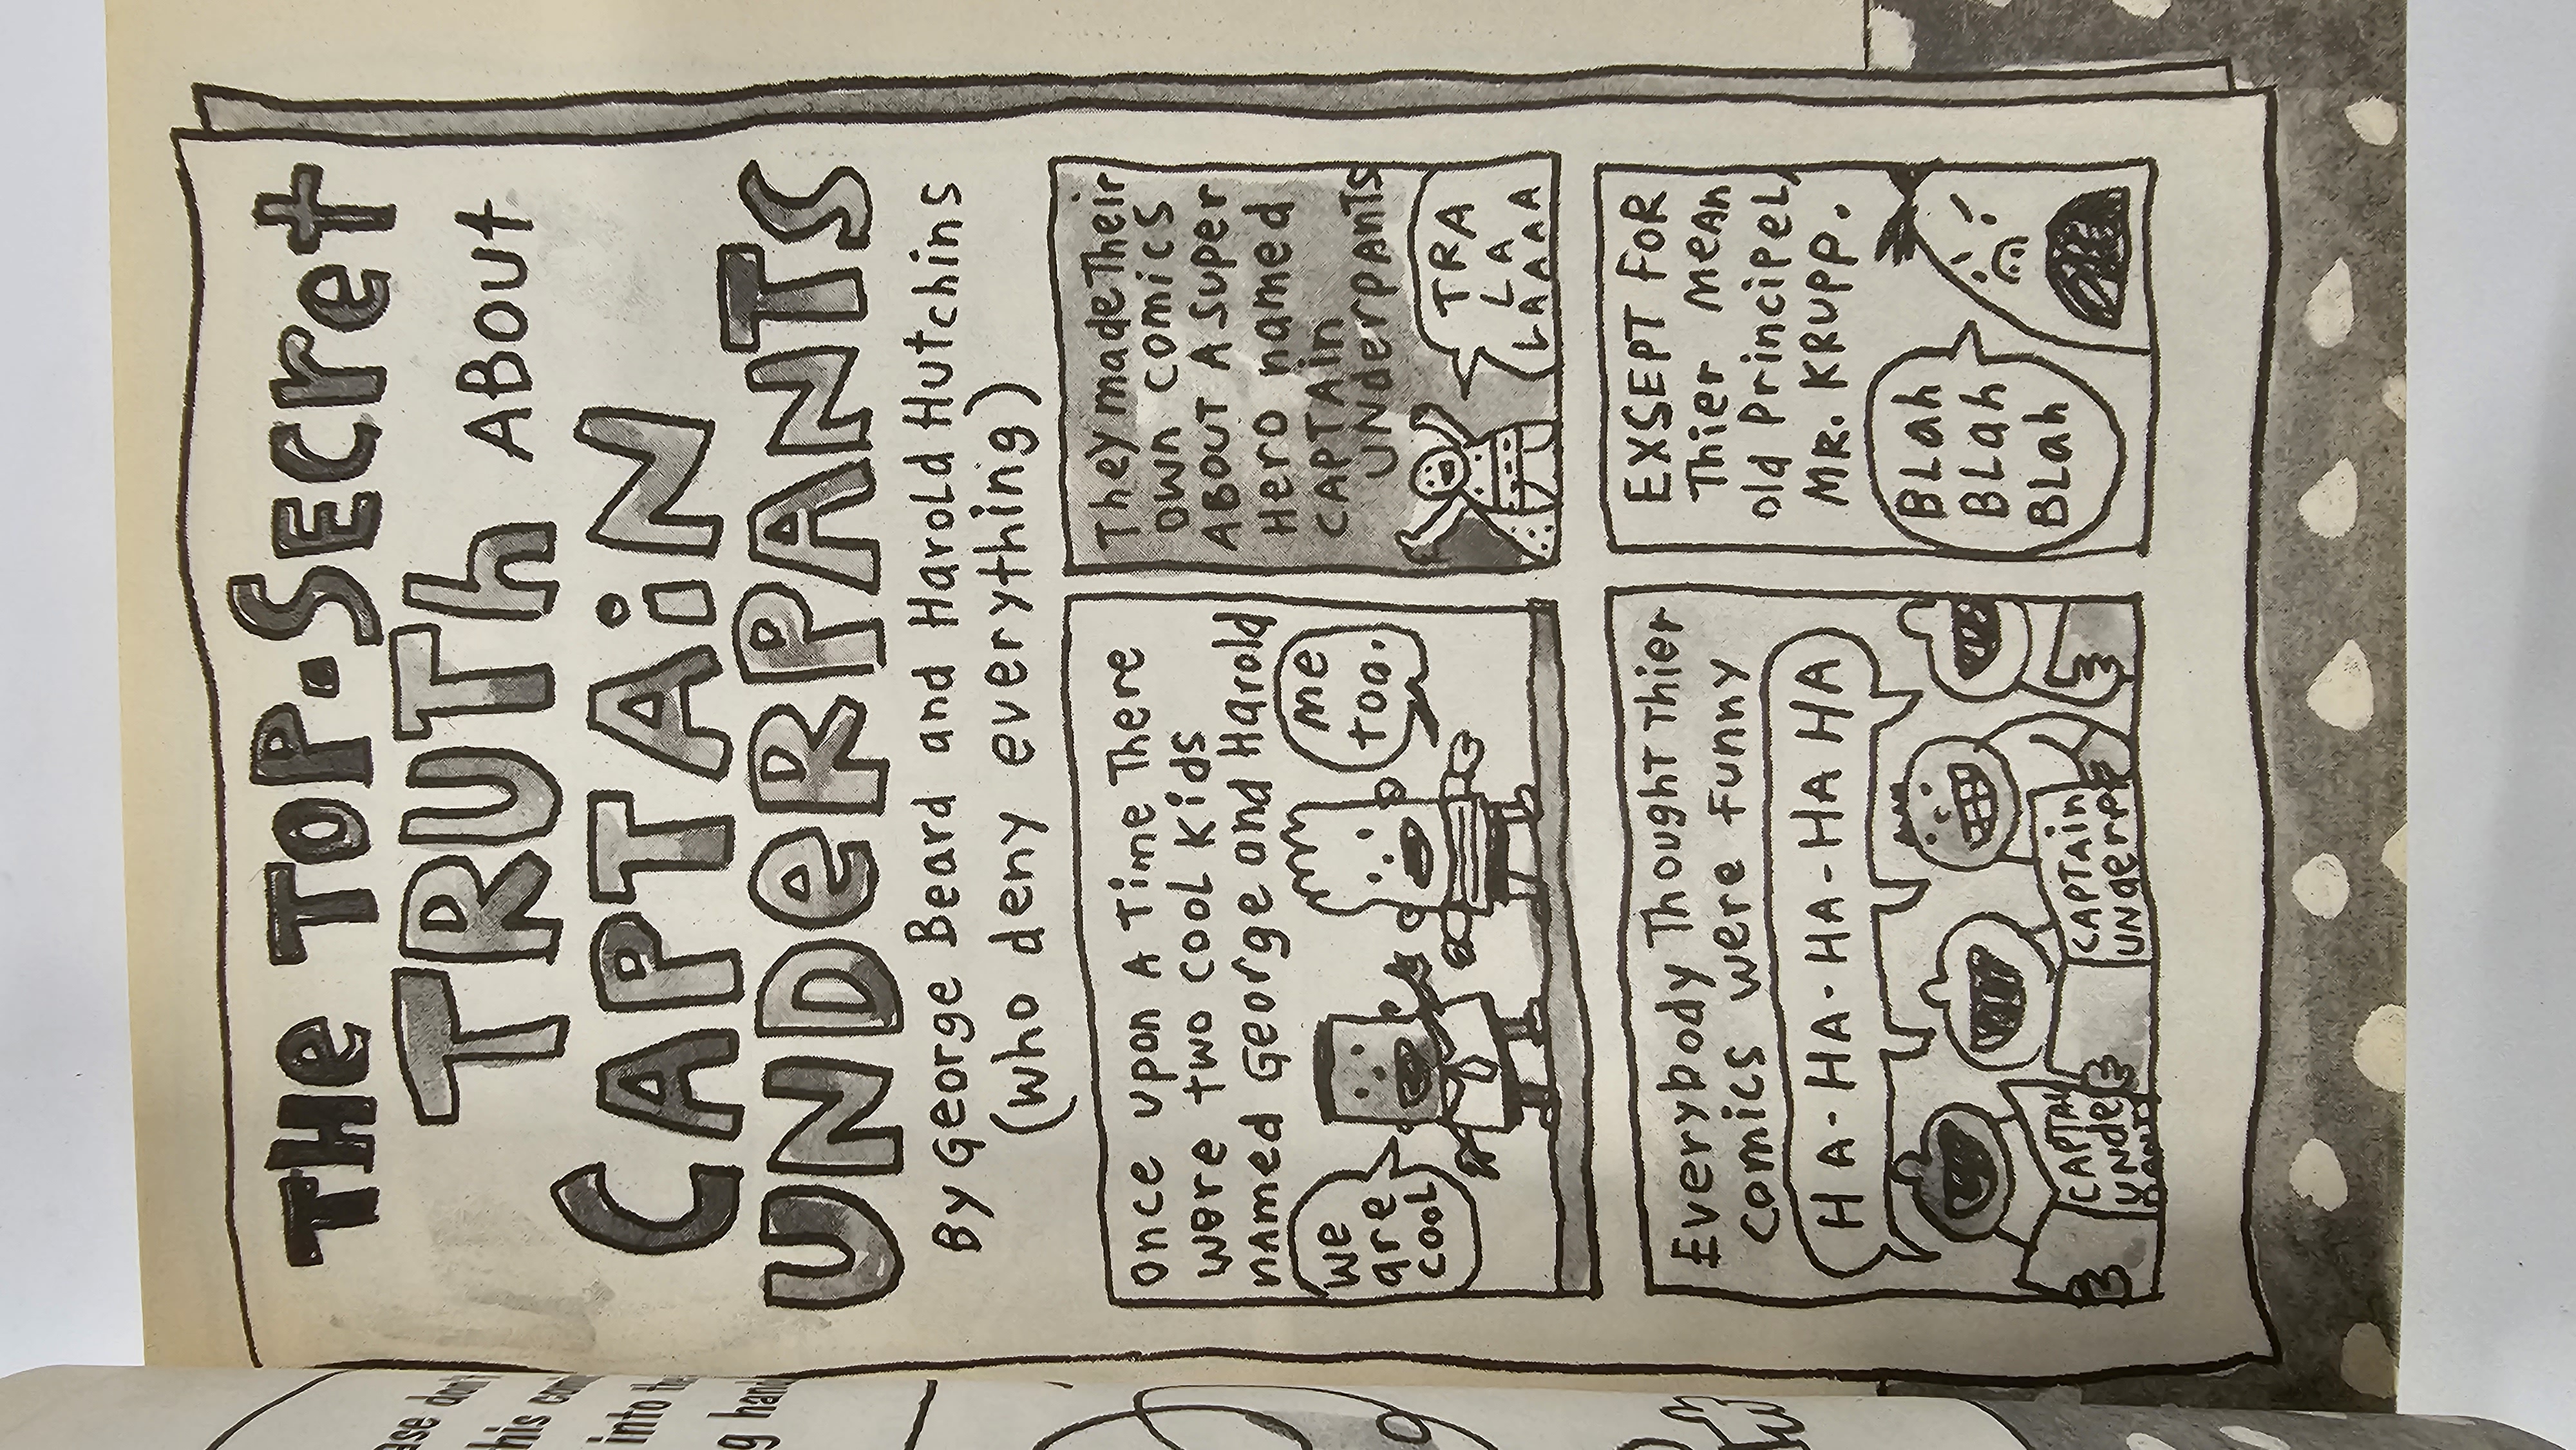 ase don't
his com
into the
g hand
THe TOP-SECreT
TRUTh ABOUt
CAPTAiN
UNDeRPANTS
By George Beard and Harold Hutchins
(who deny everything)
Once upon A Time There
were two cool Kids
nAmed George and Harold
We
are
cool
me
too.
They made Their
own comics
ABOUT A super
Hero named
CAPTAin
UNderpANTS
TRA
LA
LAAAA
Everybody Thought Thier
comics were funny
HA-HA-HA-HA HA
CAPTAi
UNde
PANTS
CAPTAin
UNderp
EXSEPT FoR
Thier meAn
old PrincipeL,
MR. KRUPP.
BLah
BLah
BLah